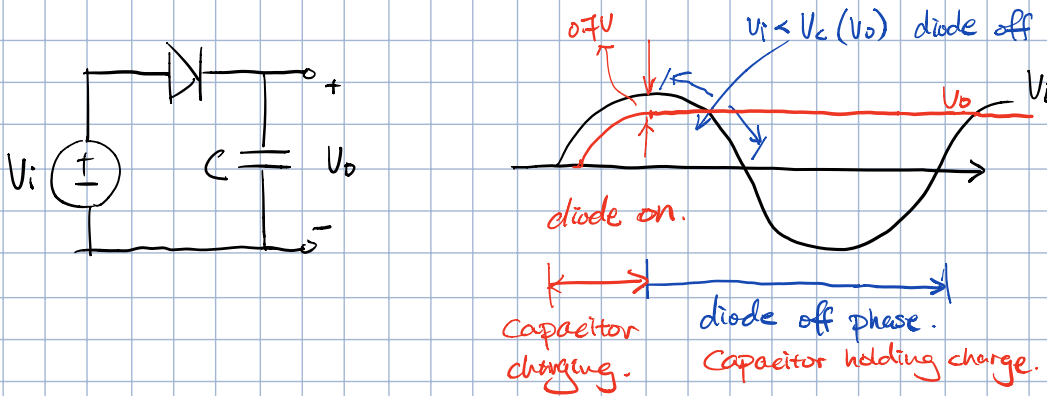 0.7V
Vi < Vc (Vo) diode off
+
Vi
+
−
C
Vo
−
Vo
Vi
diode on.
Capacitor
charging.
diode off phase.
Capacitor holding charge.